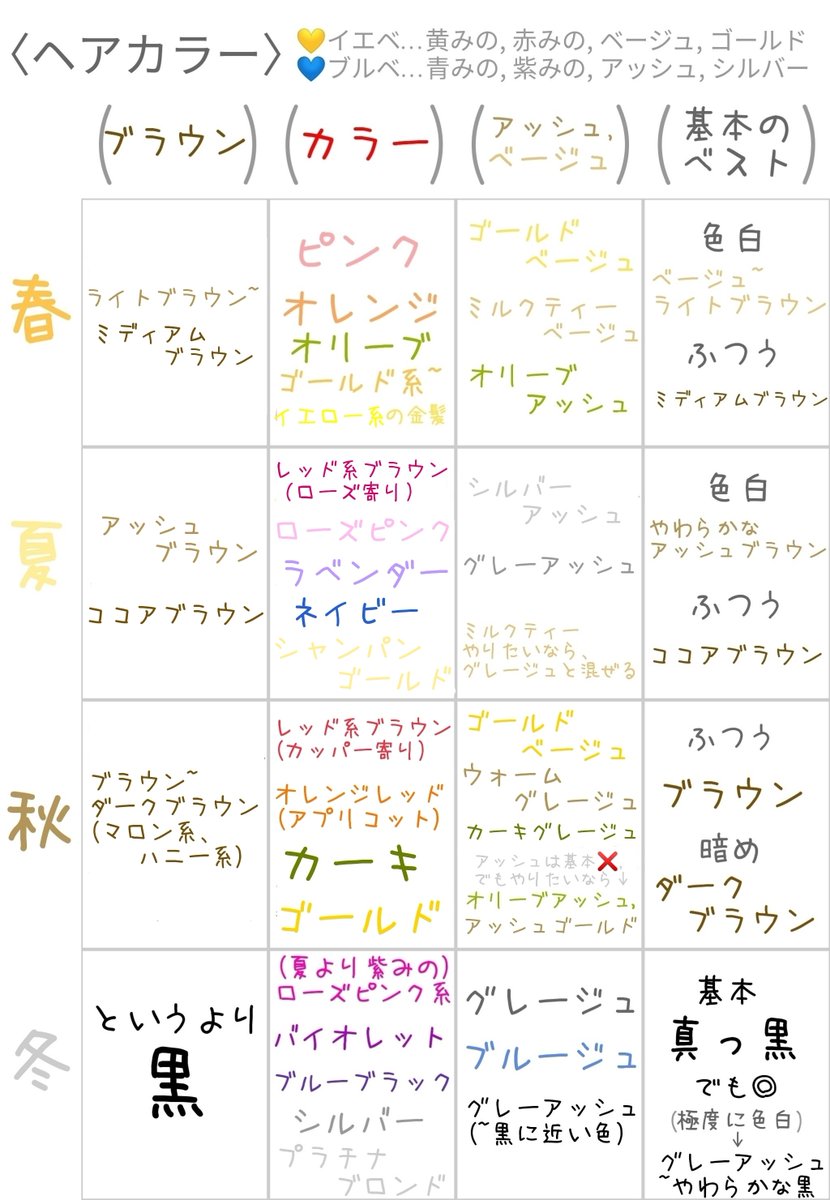 〈ヘアカラー〉
💛イエベ…黄みの, 赤みの, ベージュ, ゴールド
💙ブルベ…青みの, 紫みの, アッシュ, シルバー
(ブラウン)
(カラー)
(アッシュ,
ベージュ)
(基本の
ベスト)
春
ライトブラウン~
ミディアム
ブラウン
ピンク
オレンジ
オリーブ
ゴールド系~
イエロー系の金髪
ゴールド
ベージュ
ミルクティー
ベージュ
オリーブ
アッシュ
色白
ベージュ~
ライトブラウン
ふつう
ミディアムブラウン
夏
アッシュ
ブラウン
ココアブラウン
レッド系ブラウン
(ローズ寄り)
ローズピンク
ラベンダー
ネイビー
シャンパン
ゴールド
シルバー
アッシュ
グレーアッシュ
ミルクティー
やりたいなら、
グレージュと混ぜる
色白
やわらかな
アッシュブラウン
ふつう
ココアブラウン
秋
ブラウン~
ダークブラウン
(マロン系、
ハニー系)
レッド系ブラウン
(カッパー寄り)
オレンジレッド
(アプリコット)
カーキ
ゴールド
ゴールド
ベージュ
ウォーム
グレージュ
カーキグレージュ
アッシュは基本❌
でもやりたいなら↓
オリーブアッシュ,
アッシュゴールド
ふつう
ブラウン
暗め
ダーク
ブラウン
冬
というより
黒
(夏より紫みの)
ローズピンク系
バイオレット
ブルーブラック
シルバー
プラチナ
ブロンド
グレージュ
ブルージュ
グレーアッシュ
(~黒に近い色)
基本
真っ黒
でも◎
(極度に色白)
↓
グレーアッシュ
~やわらかな黒